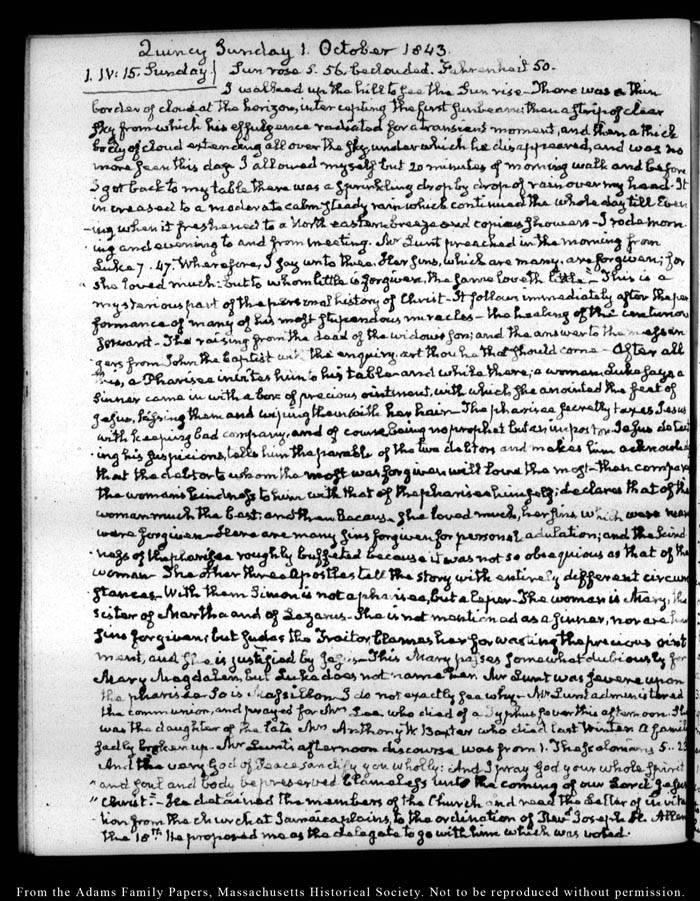 Quincy Sunday 1. October 1843.
1. IV: 15. Sunday} Sun rose 5. 56. beclouded. Fahrenheit 50.
I walked up the hill to see the Sun rise — There was a thin
border of cloud at the horizon, intercepting the first sunbeam; then a strip of clear
sky from which his effulgence radiated for a transient moment, and then a thick
body of cloud extending all over the sky, under which he disappeared, and was no
more seen this day. I allowed myself but 20 minutes of morning walk and before
I got back to my table there was a sprinkling drop by drop of rain over my head. It
increased to a moderate calm steady rain which continued the whole day till Even
-ing when it freshened to a North eastern breeze and copious showers — I rode morn
-ing and evening to and from meeting. Mr Lunt preached in the morning from
Luke 7. 47. Wherefore, I say unto thee. Her sins, which are many, are forgiven; for
" she loved much: but to whom little is forgiven, the same loveth little" — This is a
mysterious part of the personal history of Christ — It follows immediately after the per
formance of many of his most stupendous miracles — the healing of the centurion
servant — The raising from the dead of the widow's son; and the answer to the messen
gers from John the Baptist with the enquiry, art thou he that should come — After all
this, a Pharisee invites him to his table — and while there, a woman, Luke says a
sinner came in with a box of precious ointment, with which she anointed the feet of
Jesus, kissing them and wiping them with her hair — The pharisee secretly taxes Jesus
with keeping bad company, and of course being no prophet but an impostor. Jesus detect
ing his suspicions, tells him the parable of the two debtors and makes him acknowledge
that the debtor to whom the most was forgiven will love the most — then compares
the woman's kindness to him with that of the pharisee himself; declares that of the
woman much the best; and then Because she loved much, her sins which were many
were forgiven — Here are many sins forgiven for personal adulation; and the kind
ness of the pharisee roughly buffeted because it was not so obsequious as that of the
woman — The other three Apostles tell the story with entirely different circum
stances — With them Simon is not a pharisee, but a leper — The woman is Mary, the
sister of Martha and of Lazarus — She is not mentioned as a sinner, nor are her
sins forgiven; but Judas the Traitor blames her for wasting the precious oint
ment, and she is justified by Jesus — This Mary passes somewhat dubiously for
Mary Magdalen, but Luke does not name her. Mr Lunt was severe upon
the pharisee — So is Massillon. I do not exactly see why — Mr Lunt administered
the communion, and prayed for Mrs Lee, who died of a Typhus fever this afternoon. She
was the daughter of the late Mrs Anthony W. Baxter who died last Winter a family
sadly broken up — Mr Lunt's afternoon discourse was from 1. Thessalonians 5. 23
And the very God of Peace sanctify you wholly: And I pray God your whole Spirit
" and soul and body be preserved blameless unto the coming of our Lord Jesus
" Christ." — He detained the members of the Church and read the Letter of invita
tion from the church at Jamaica plains, to the ordination of Revd Joseph H. Allen
the 18th He proposed me as the delegate to go with him which was voted.
From the Adams Family Papers, Massachusetts Historical Society. Not to be reproduced without permission.